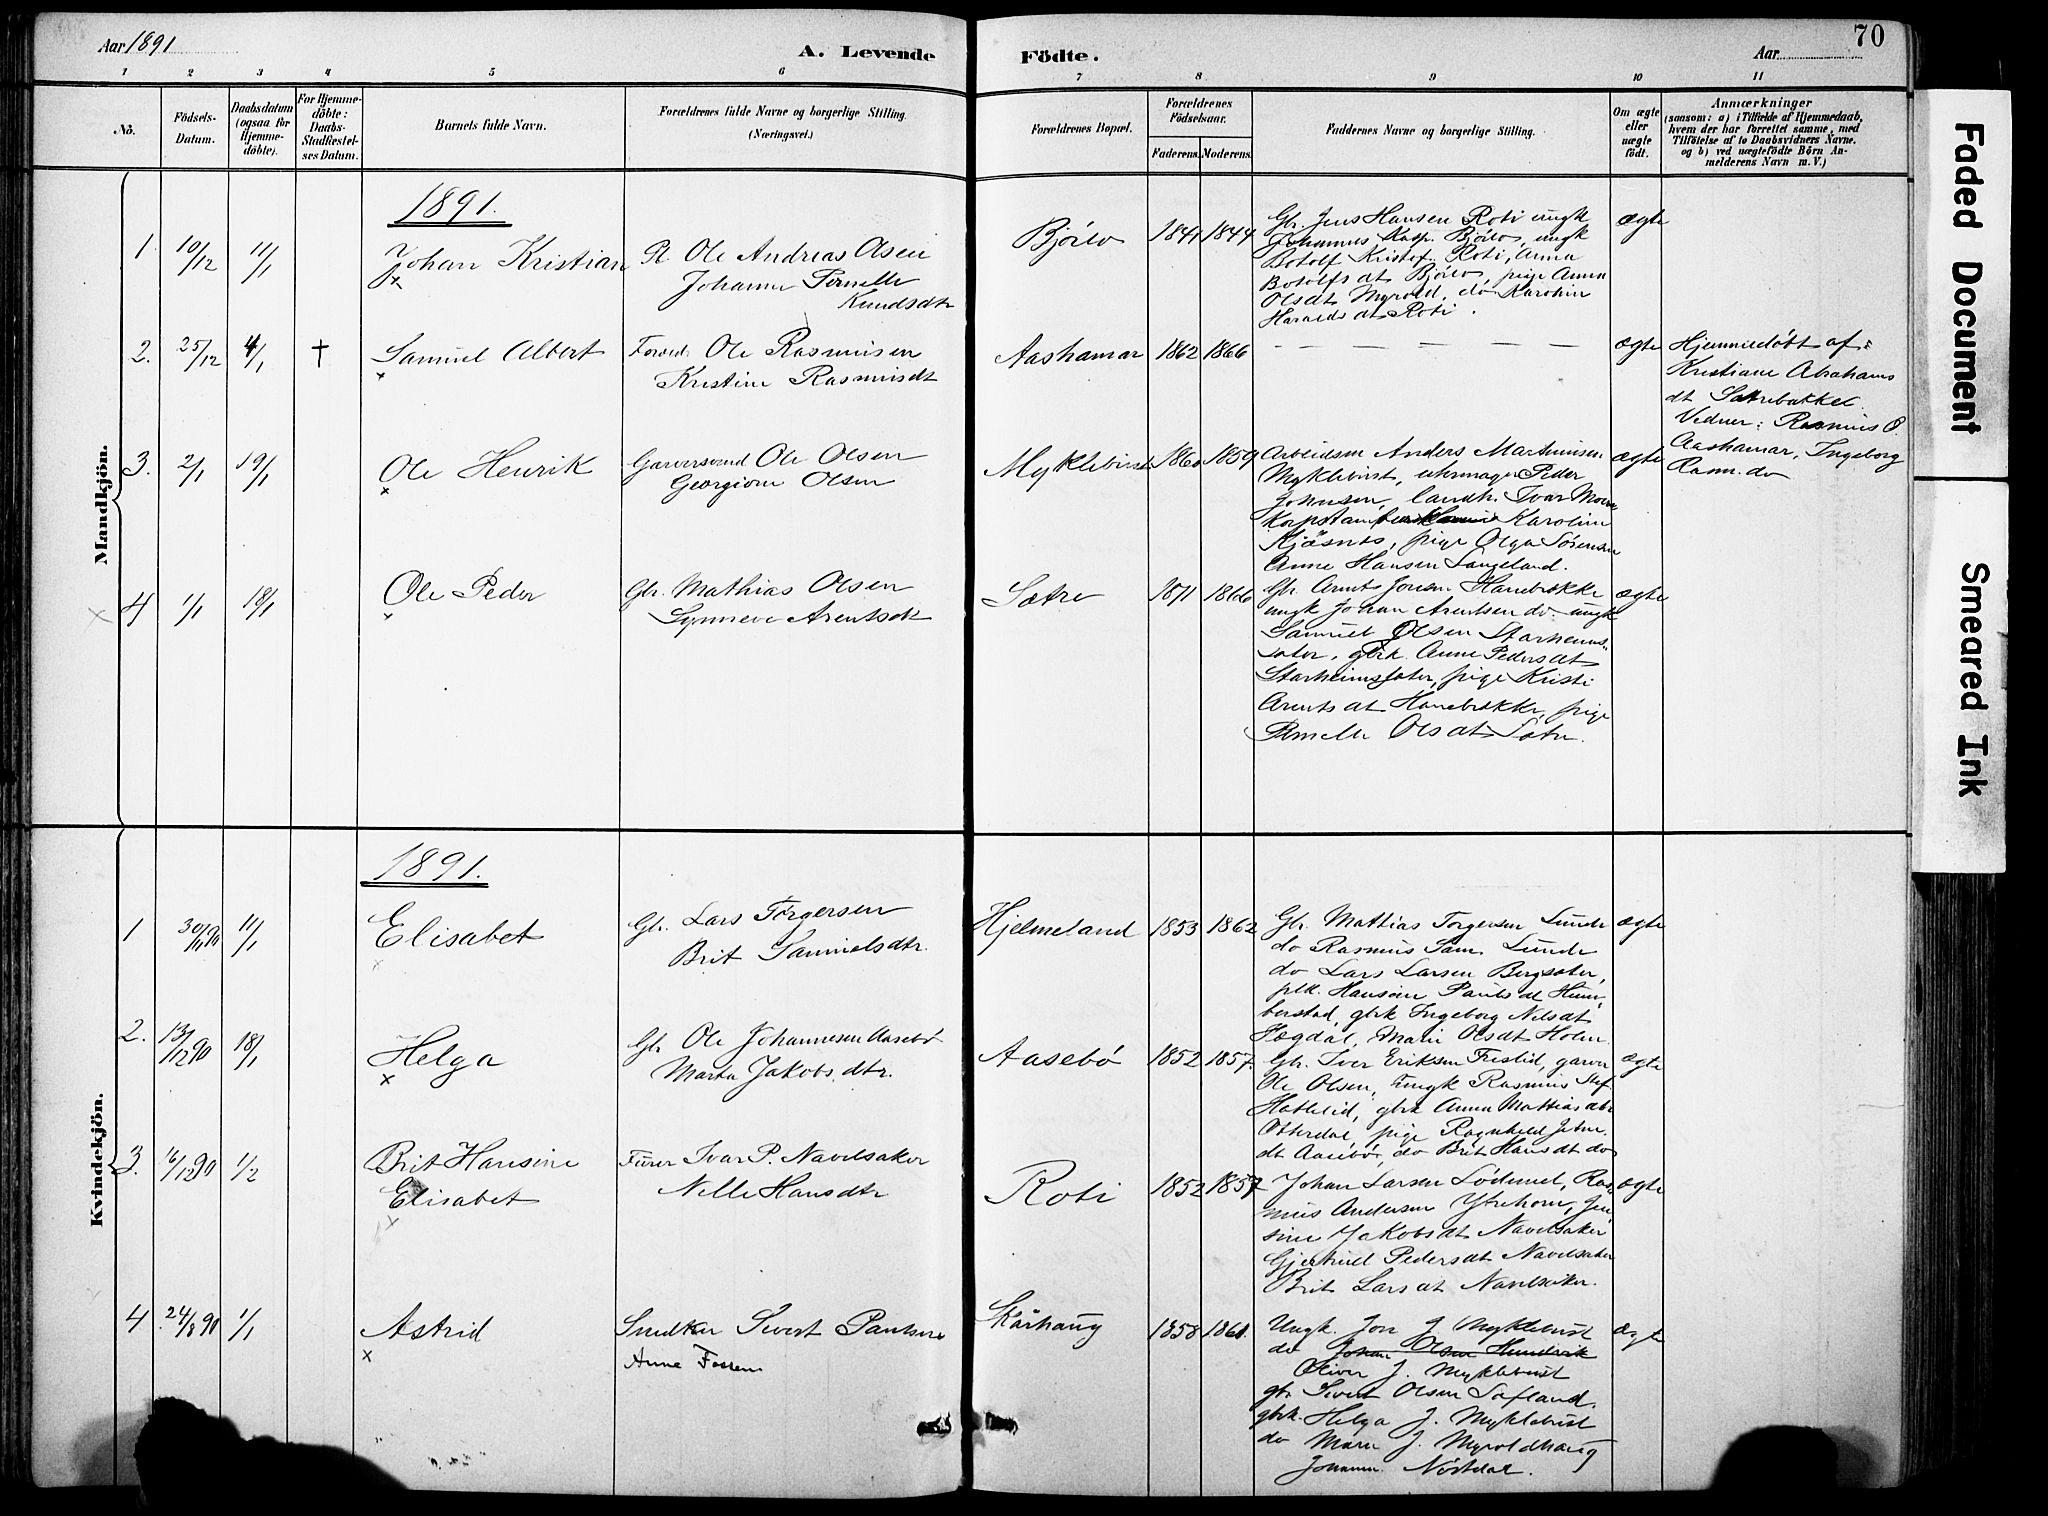 Aar 1891
A. Levende
Födte.
Aar
70
1 2 3 4 5 6 7 8 9 10 11
No.
Födsels-
Datum.
Daabsdatum
(ogsaa for
Hjemme-
döbte).
For Hjemme-
döbte:
Daabs-
Stadfestel-
ses Datum.
Barnets fulde Navn.
Forældrenes fulde Navne og borgerlige Stilling.
(Næringsvei.)
Forældrenes Bopæl.
Forældrenes
Födselsaar.
Faderens. Moderens.
Faddernes Navne og borgerlige Stilling.
Om ægte
eller
uægte
födt.
Anmærkninger
(saasom: a) i Tilfælde af Hjemmedaab,
hvem der har forrettet samme, med
Tilföielse af to Daabsvidners Navne.
og b) ved uægtefödte Börn An-
melderens Navn m. V.)
Mandkjön.
1891.
1 10/12 11/1 Johan Kristian Pl. Ole Andreas Olsen
Johanne Pernelle
Knudsdtr
Bjørlo 1841 1844
Gbr. Jens Hansen Roti ungk
Johannes Kasp. Bjørlo, ungk
Botolf Kristof. Roti, Anna
Botolfsdt Bjørlo, pige Anna
Olsdt Myrold, do Karolin
Haraldsdt Roti.
ægte
2. 25/12 4/1 † Samuel Albert Forord Ole Rasmusen
Kristine Rasmusdt
Aashamar 1862 1866 — — — — — — ægte
Hjemmedøbt af:
Kristiane Abrahams
dt Sætrebakkel.
Vidner: Rasmus O.
Aashamar, Ingeborg
Rasm. do
3. 2/1 19/1 Ole Henrik Garversvend Ole Olsen
Georgine Olsen
Myklebust 1860 1859
Arbeidsm Anders Martinusen
Myklebust, uhrmager Peder
Johnsen, landh. Ivar Moene
Karoline
Kjøsnes, pige Olga Sørensen
Anne Hansen Langeland.
ægte
4 1/1 18/1 Ole Peder Gbr. Mathias Olsen
Synneve Arentsdt
Sætre 1871 1866
Gbr. Arnt Jonsen Hanebrekke
ungk Johan Arentsen do ungk
Samuel Olsen Starheims-
sæter, gbrk. Anne Pedersdt
Starheimssæter, pige Kristi
Arentsdt Hanebrekke, pige
Pernelle Olsdt Sætre.
ægte
Kvindekjön.
1891.
1 30/11 90 11/1 Elisabet Gbr. Lars Torgersen
Brit Samuelsdtr.
Hjelmeland 1853 1862
Gbr. Mathias Torgersen Lunde
do Rasmus Sam. Lunde
do Lars Larsen Bergsæter,
plk. Hansine Paulsdt Hum-
berstad, gbrk Ingeborg Nilsdt
Hegdal, Marie Olsdt Holm
ægte
2. 13/12 90 18/1 Helga Gbr Ole Johannesen Aasebø
Marta Jakobsdtr.
Aasebø 1852 1857.
Gbr. Iver Eriksen Fristid, garver
Ole Olsen, ungk Rasmus Stef
Hatlelid, gbrk Anna Mathiasdtr
Otterdal, pige Ragnhild Jetm.
dt Aasebø, do Brit Hansdt do
ægte
3. 16/12 90 1/2 Brit Hansine
Elisabet
Furer Ivar P. Navelsaker
Nelle Hansdtr
Roti 1852 1857
Johan Larsen Lødemel, Ras-
mus Andersen Ytrehorn, Jen-
sine Jakobsdt Navelsaker
Gjertrud Pedersdt Navelsaker
Brit Larsdt Navelsaker.
ægte
4 24/8 90 1/1 Astrid Snedker Sivert Paulsen
Anne Fossem
Skårhaug 1858 1861.
Ungk. Jon J Myklebust
do Johan Olsen Hundvik
Oliver J. Myklebust
gbr Sivert Olsen Sæfland.
gbrk. Helga J. Myklebust
do Marie J. Myroldhaug
Johanne Nøstdal.
ægte
Faded Document
Smeared Ink